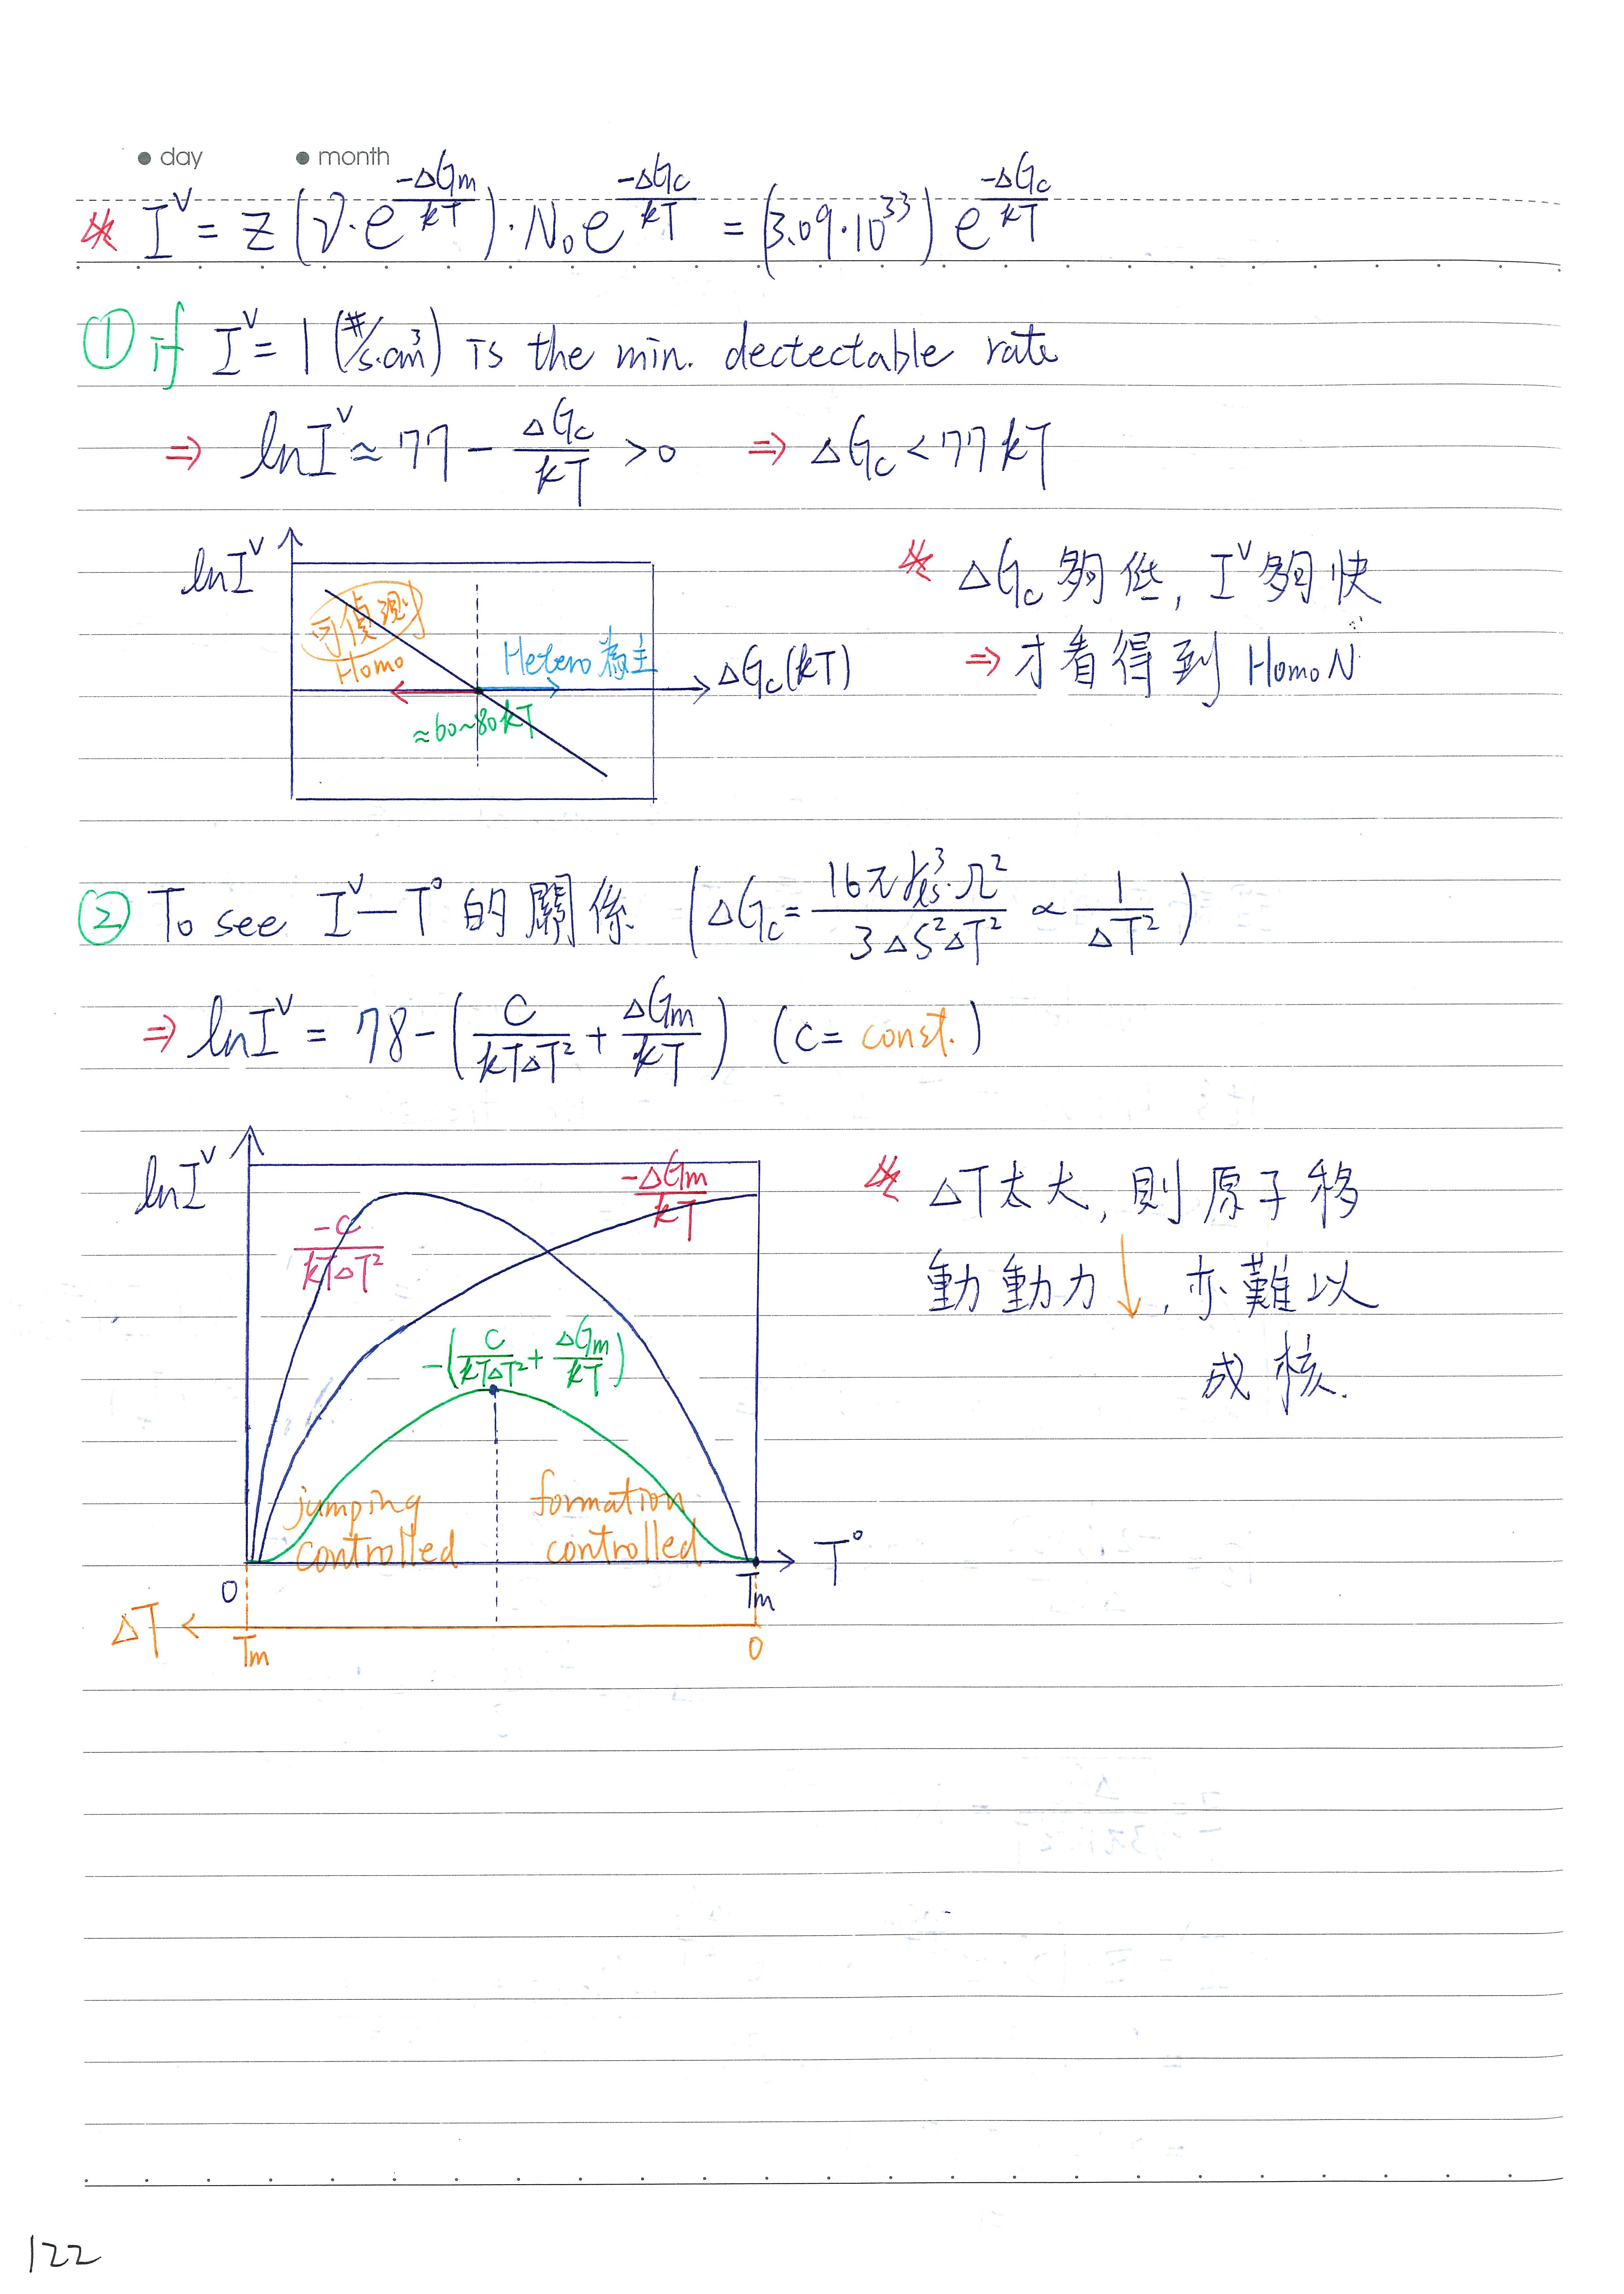 ● day ● month
※ I^V = Z (ν·e^(-ΔGm/kT))·N₀e^(-ΔGc/kT) = (3.09·10³³) e^(-ΔGc/kT)
① if I^V = 1 (#/s·cm³) is the min. dectectable rate
⇒ lnI^V ≈ 77 - ΔGc/kT > 0 ⇒ ΔGc < 77kT
lnI^V
可偵測
Homo
Hetero為主
ΔGc(kT)
≈60~80kT
※ ΔGc 夠低, I^V 夠快
⇒ 才看得到 HomoN
② To see I^V—T° 的關係 (ΔGc = 16πγ_ls³·Ω²/3ΔS²ΔT² ∝ 1/ΔT²)
⇒ lnI^V = 78 - (C/kTΔT² + ΔGm/kT) (C = const.)
lnI^V
-C/kTΔT²
-ΔGm/kT
-(C/kTΔT² + ΔGm/kT)
jumping controlled
formation controlled
0 Tm T°
ΔT Tm 0
※ ΔT太大, 則原子移
動動力↓, 亦難以
成核.
122